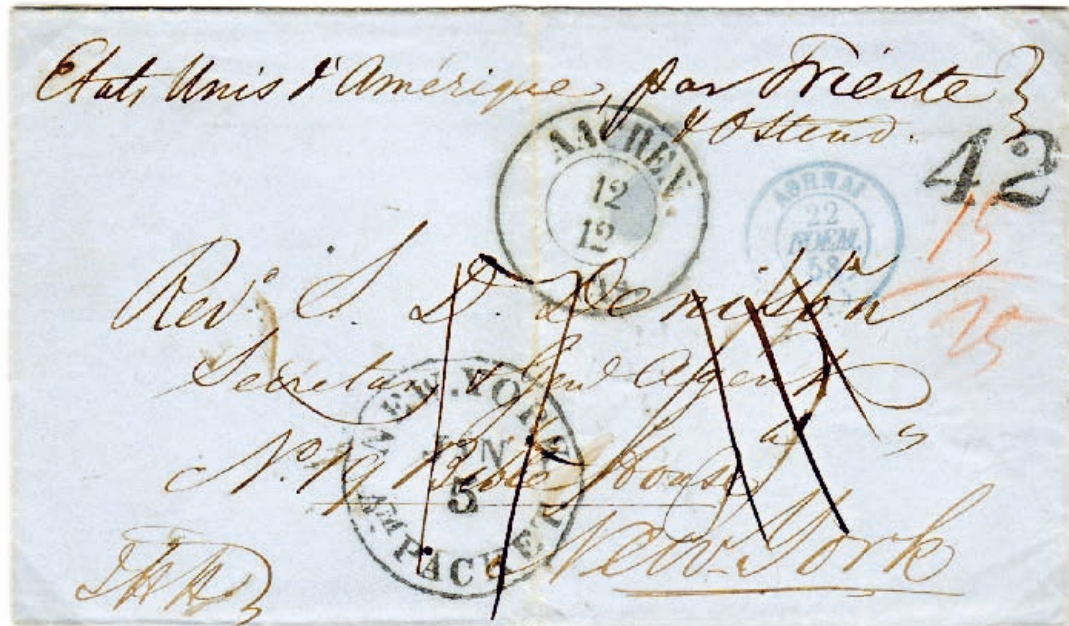 Etats Unis d'Amérique, par Trieste
& Ostend.
42
AACHEN
12
12
ΑΘΗΝΑΙ
22
ΝΟΕΜ.
58
15
25
Revd. S. D. Denison
Secretary & Genl Agent
No. 19 Bible House
New York
NEW-YORK
JAN
5
AM. PACKET